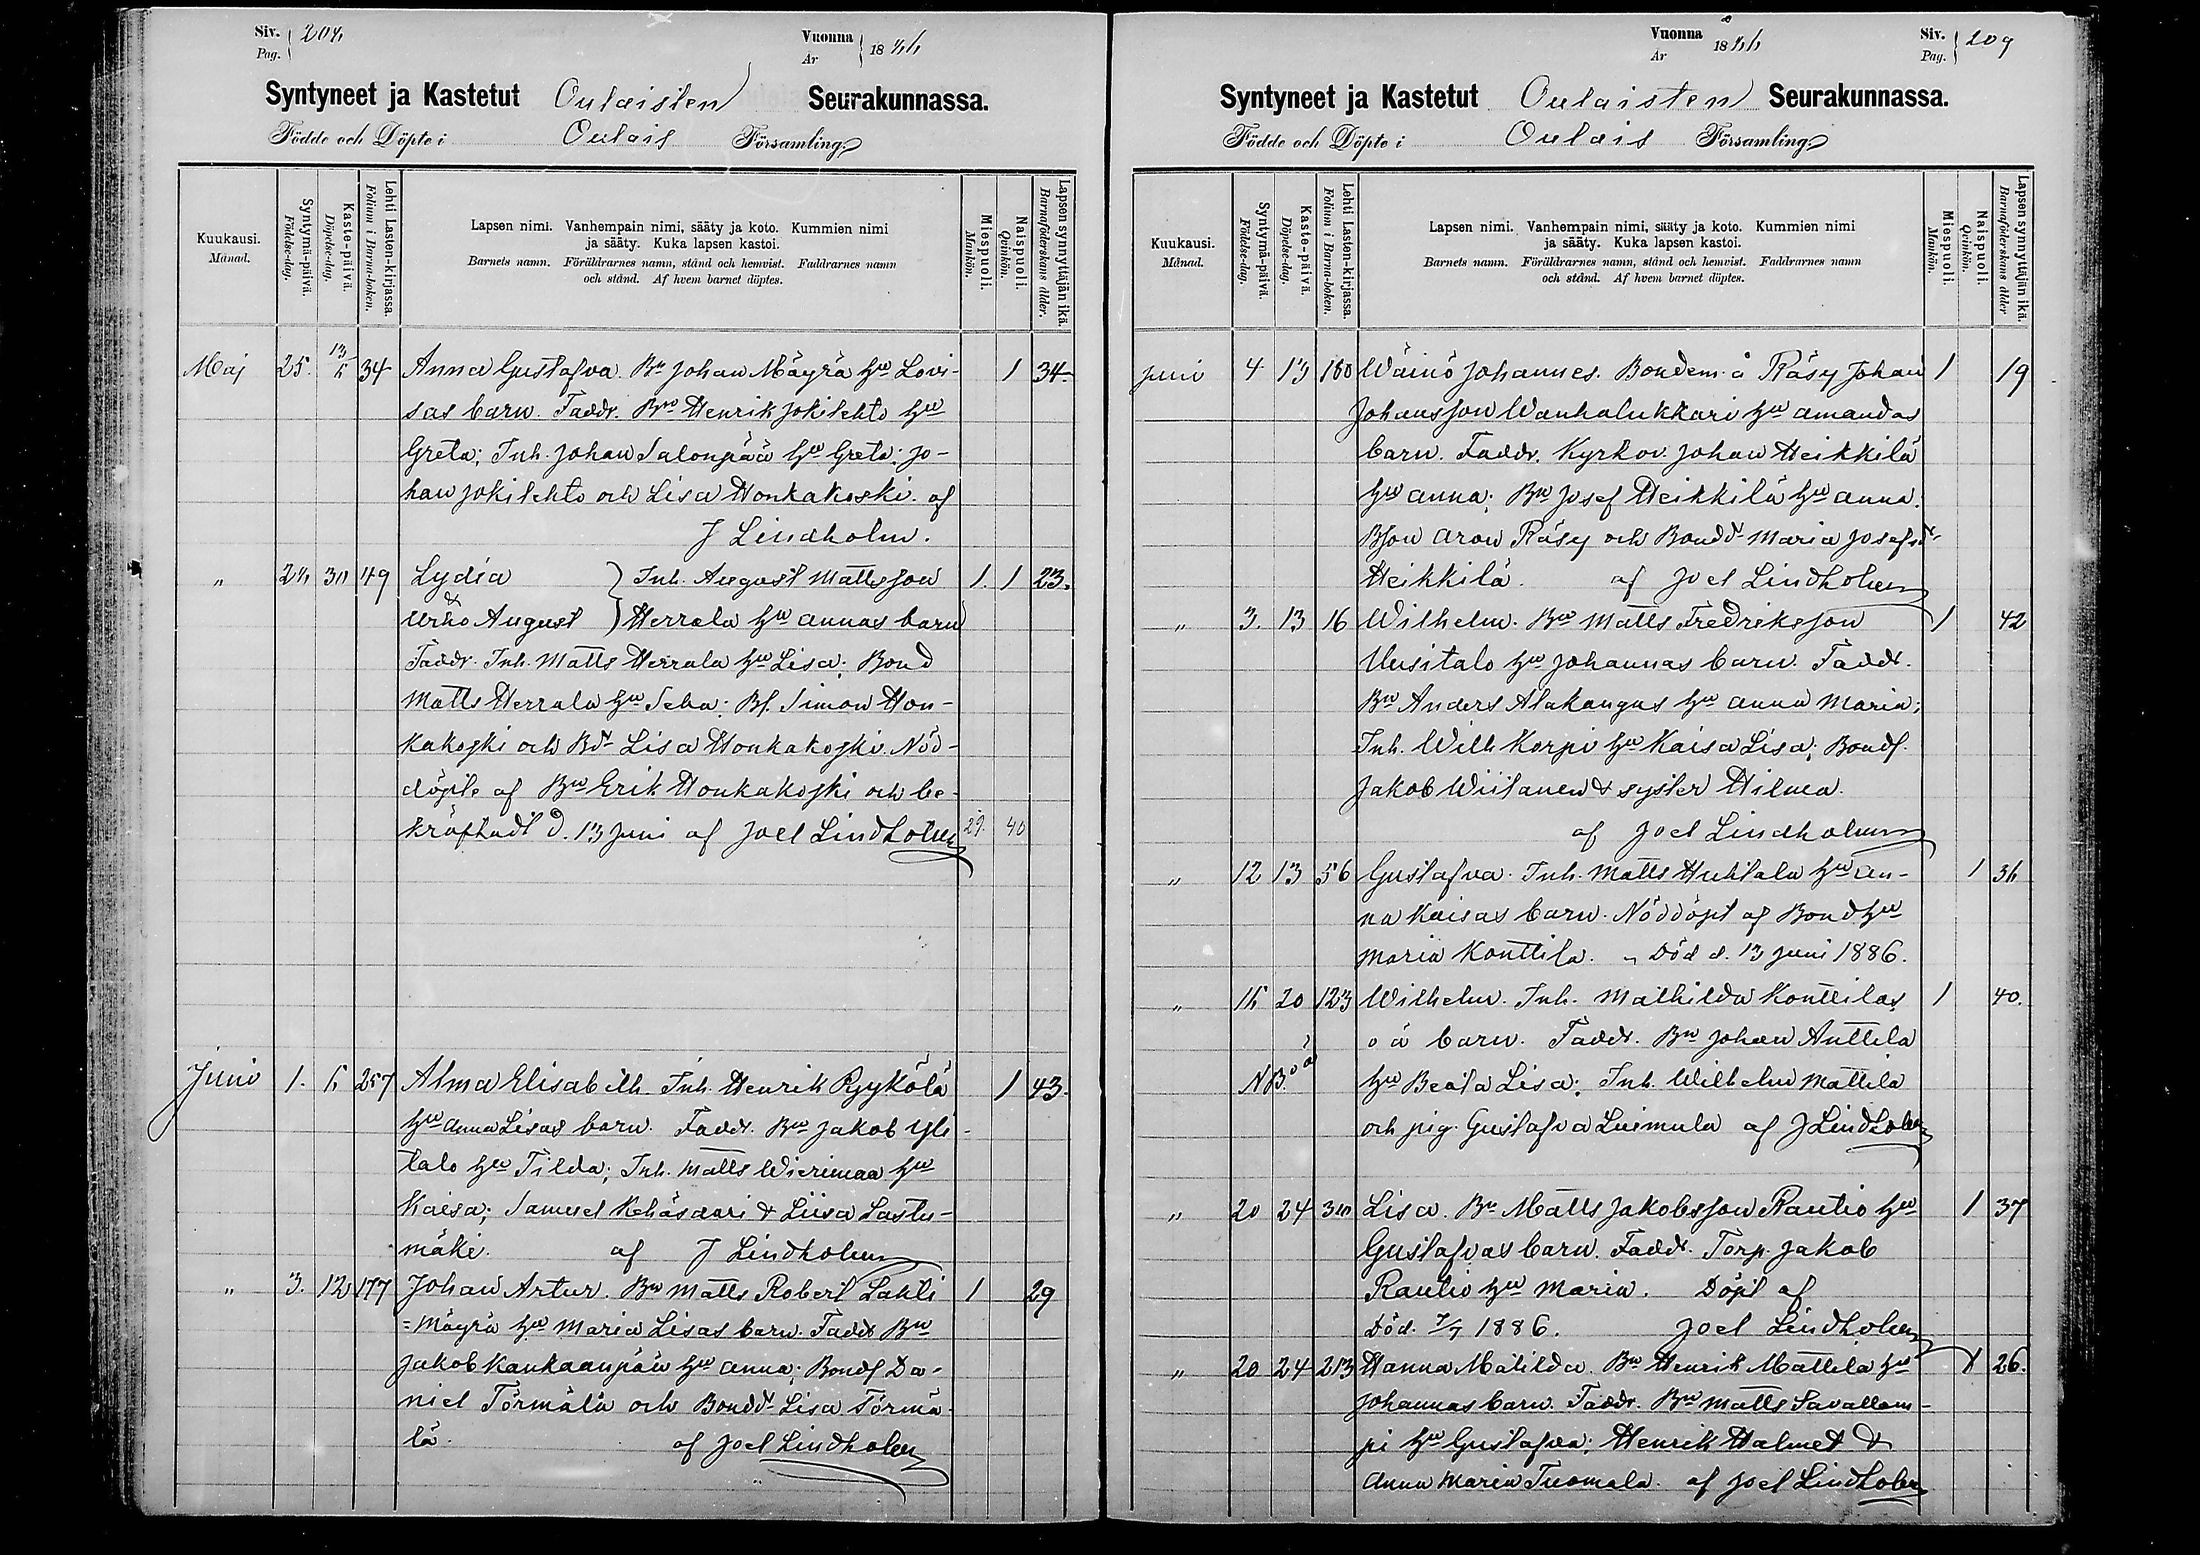 Siv. 208
Pag.
Vuonna 1886
År
Syntyneet ja Kastetut Oulaisten Seurakunnassa.
Födde och Döpte i Oulais Församling.
Kuukausi. Månad.
Syntymä-päivä. Födelse-dag.
Kaste-päivä. Döpelse-dag.
Lehti Lasten-kirjassa. Folium i Barna-boken.
Lapsen nimi. Vanhempain nimi, sääty ja koto. Kummien nimi
ja sääty. Kuka lapsen kastoi.
Barnets namn. Föräldrarnes namn, stånd och hemvist. Faddrarnes namn
och stånd. Af hvem barnet döptes.
Miespuoli. Mankön.
Naispuoli. Qvinkön.
Lapsen synnyttäjän ikä. Barnaföderskans ålder.
Maj 25. 13/6 34 Anna Gustafva. Bn Johan Mäyrä hu Lovi- 1 34.
sas barn. Faddr. Bn Henrik Jokilehto hu
Greta; Inh. Johan Salonpää hu Greta; Jo-
han Jokilehto och Lisa Honkakoski. af
J Lindholm.
" 28 30 49 Lydia } Inh. August Mattsson 1. 1 23.
& Urho August } Herrala hu Annas barn
Faddr. Inh. Matts Herrala hu Lisa; Bond
Matts Herrala hu Seba; Bs. Simon Hon-
kakoski och Bd. Lisa Honkakoski. Nöd-
döpte af Bn Erik Honkakoski och be-
kräftadt d. 13 Juni af Joel Lindholm 29. 40
Juni 1. 6 257 Alma Elisabeth. Inh. Henrik Ryykölä 1 43.
hu Anna Lisas barn. Faddr. Bn Jakob Yli-
talo hu Tilda; Inh. Matts Wierimaa hu
Kaisa; Samuel Kehäsaari & Liisa Lastu-
mäki. af J Lindholm
" 3. 12 177 Johan Artur. Bn Matts Robert Lahti 1 29
=Mäyrä hu Maria Lisas barn. Faddr Bn
Jakob Kankaanpää hu Anna; Bonds Da-
niel Törmälä och Bondd. Lisa Törmä-
lä. af Joel Lindholm
Vuonna 1886
År
Siv. 209
Pag.
Syntyneet ja Kastetut Oulaisten Seurakunnassa.
Födde och Döpte i Oulais Församling.
Kuukausi. Månad.
Syntymä-päivä. Födelse-dag.
Kaste-päivä. Döpelse-dag.
Lehti Lasten-kirjassa. Folium i Barna-boken.
Lapsen nimi. Vanhempain nimi, sääty ja koto. Kummien nimi
ja sääty. Kuka lapsen kastoi.
Barnets namn. Föräldrarnes namn, stånd och hemvist. Faddrarnes namn
och stånd. Af hvem barnet döptes.
Miespuoli. Mankön.
Naispuoli. Qvinkön.
Lapsen synnyttäjän ikä. Barnaföderskans ålder
Juni 4 13 180 Wäinö Johannes. Bondem. å Räsy Johan 1 19
Johansson Wanhalukkari hu Amandas
barn. Faddr. Kyrkov. Johan Heikkilä
hu Anna; Bn Josef Heikkilä hu Anna;
Bson Aron Räsy och Bondd. Maria Josefsdr
Heikkilä. af Joel Lindholm
" 3. 13 16 Wilhelm. Bn Matts Fredriksson 1 42
Uusitalo hu Johannas barn. Faddr.
Bn Anders Alakangas hu Anna Maria;
Inh. Wilh Korpi hu Kaisa Lisa; Bonds.
Jakob Wiitanen & syster Hilma.
af Joel Lindholm
" 12 13 56 Gustafva. Inh. Matts Huhtala hu An- 1 36
na Kaisas barn. Nöddöpt af Bondhu
Maria Konttila. Död d. 13 Juni 1886.
" 16 20 123 Wilhelm. Inh. Mathilda Konttilas 1 40.
o ä barn. Faddr. Bn Johan Anttila
NB. o ä hu Beata Lisa; Inh. Wilhelm Mattila
och pig. Gustafva Luimula af J Lindholm
" 20 24 310 Lisa. Bn Matts Jakobsson Rautio hu 1 37
Gustafvas barn. Faddr. Torp. Jakob
Rautio hu Maria. Döpt af
Död. 7/7 1886. Joel Lindholm
" 20 24 213 Hanna Matilda. Bn Henrik Mattila hu 1 26.
Johannas barn. Faddr. Bn Matts Savallam-
pi hu Gustafva; Henrik Halmet &
Anna Maria Tuomala. af Joel Lindholm